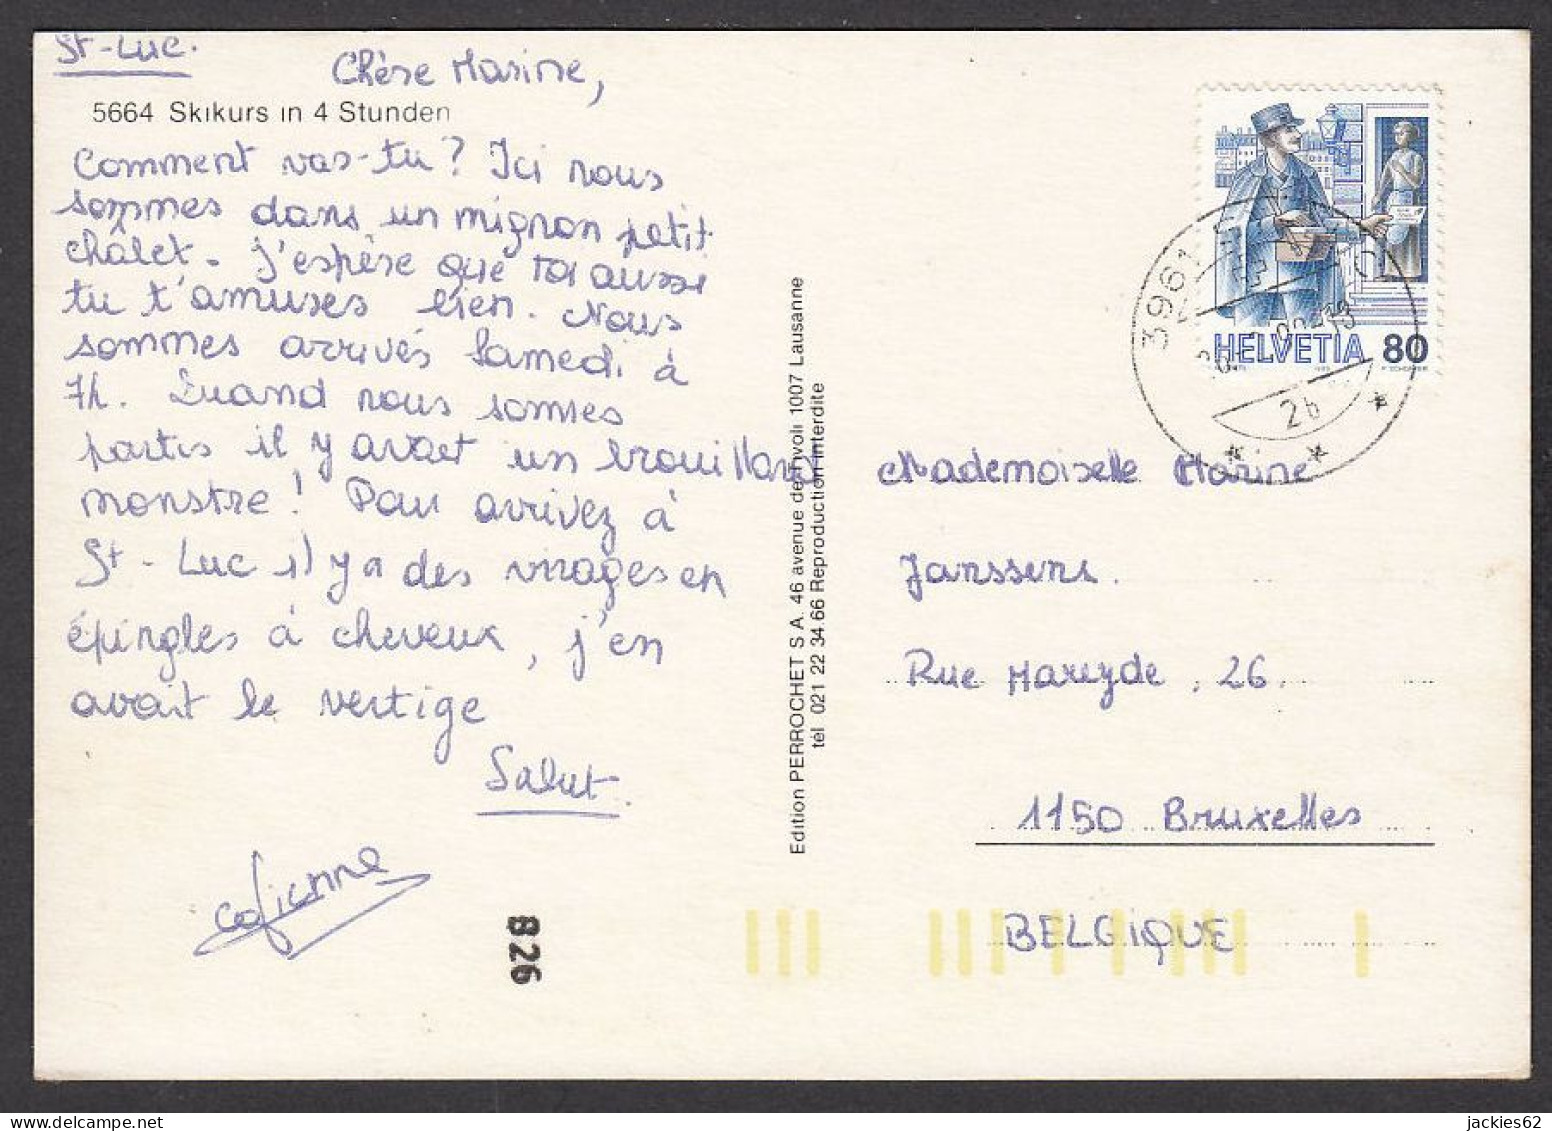 St-Luc.
Chère Marine,
5664 Skikurs in 4 Stunden
Comment vas-tu? Ici nous
sommes dans un mignon petit
châlet. J'espère que toi aussi
tu t'amuses bien. Nous
sommes arrivés Samedi à
7h. Quand nous sommes
partis il y avait un brouillard
monstre! Pour arrivez à
St-Luc il y a des virages en
épingles à cheveux, j'en
avait le vertige
Salut.
826
Edition PERROCHET S A. 46 avenue de Tivoli 1007 Lausanne
tél 021 22 34.66 Reproduction interdite
HELVETIA 80
3961
2b
Mademoiselle Marine
Janssens.
Rue 26.
1150 Bruxelles
BELGIQUE
jackies62